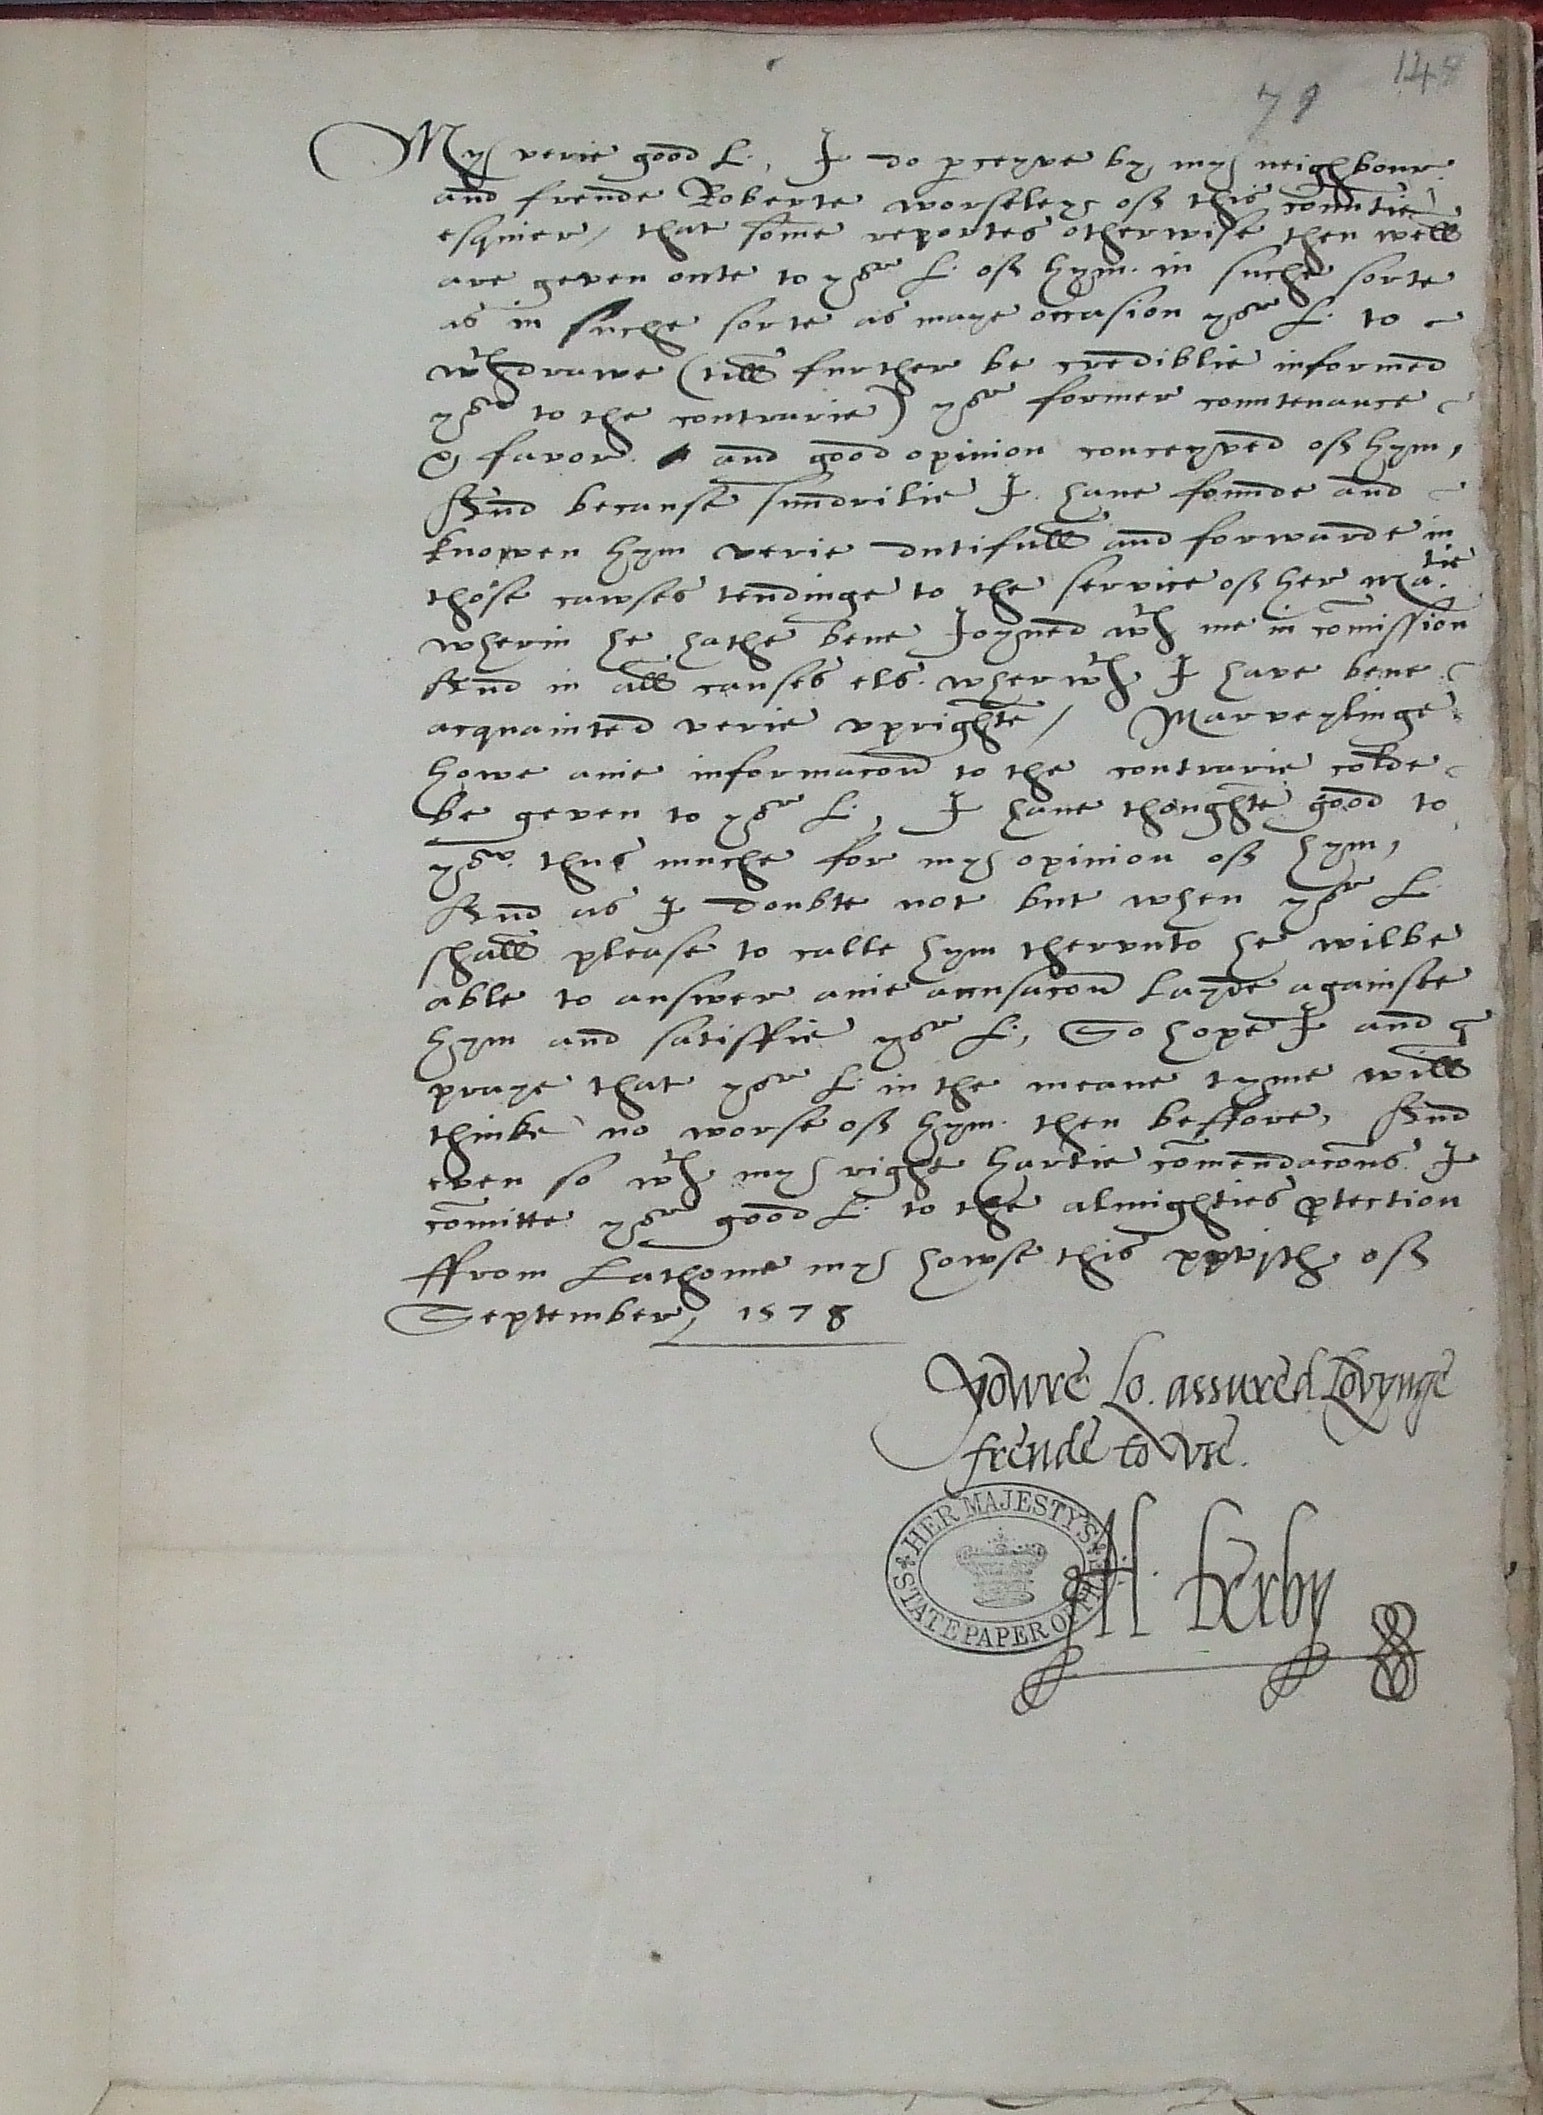 148
79
My verie good L., I do perceyve by my neighbour
and frende Roberte worseley off this countie
esquier / that some reportes otherwise then well
are geven oute to yor L. off hym. in suche sorte
as in suche sorte as maye occasion yor L. to
wthdrawe (till further be crediblie informed
yor to the contrarie) yor former countenance
& favor. and good opinion conceyved off hym,
And because sundrilie I. have founde and
knowen hym verie dutifull and forwarde in
those cawses tendinge to the service off her Matie.
wherin he hathe bene Ioyned wth me in comission
And in all causes els. wherwth I have bene
acquainted verie uprighte / Marveylinge
howe anie informacon to the contrarie colde
be geven to yor L., I have thoughte good to
yor. thus muche for my opinion off hym,
And as I doubte not but when yor L.
shall please to calle hym thervnto he wilbe
able to answer anie accusacon layde againste
hym and satisffie yor L., So hope I and
praye that yor L. in the meane tyme will
thinke no worse off hym. then beffore, And
even so wth my right hartie comendacons. I
comitte yor good L. to the almighties ptection
ffrom Lathome my howse this xxvith off
September, 1578
Yowre Lo. assured Lovynge
frende to vse.
H. Derby
HER MAJESTY'S STATE PAPER OFFICE